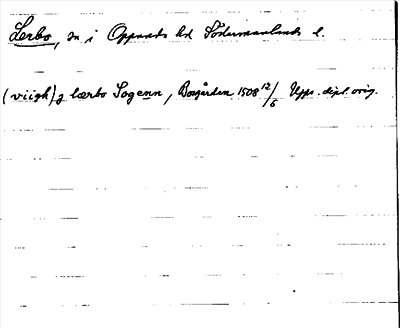 Lerbo, sn i Oppunda hd Södermanlands l.
(viigh) j lærbo Sogenn, Bogården 1508 12/6 Upps. dipl. orig.